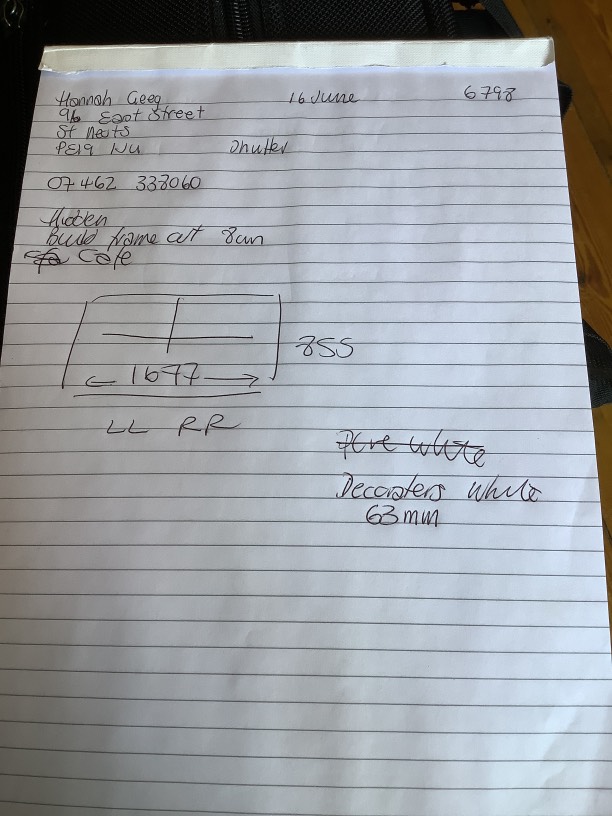 Hannah Geeg 16 June 6798
96 East Street
St Neots
PE19 1JU Shutter
07462 338060
Hidden
Build frame out 8cm
Cafe
855
1677
LL RR
Pure white
Decorators White
63mm